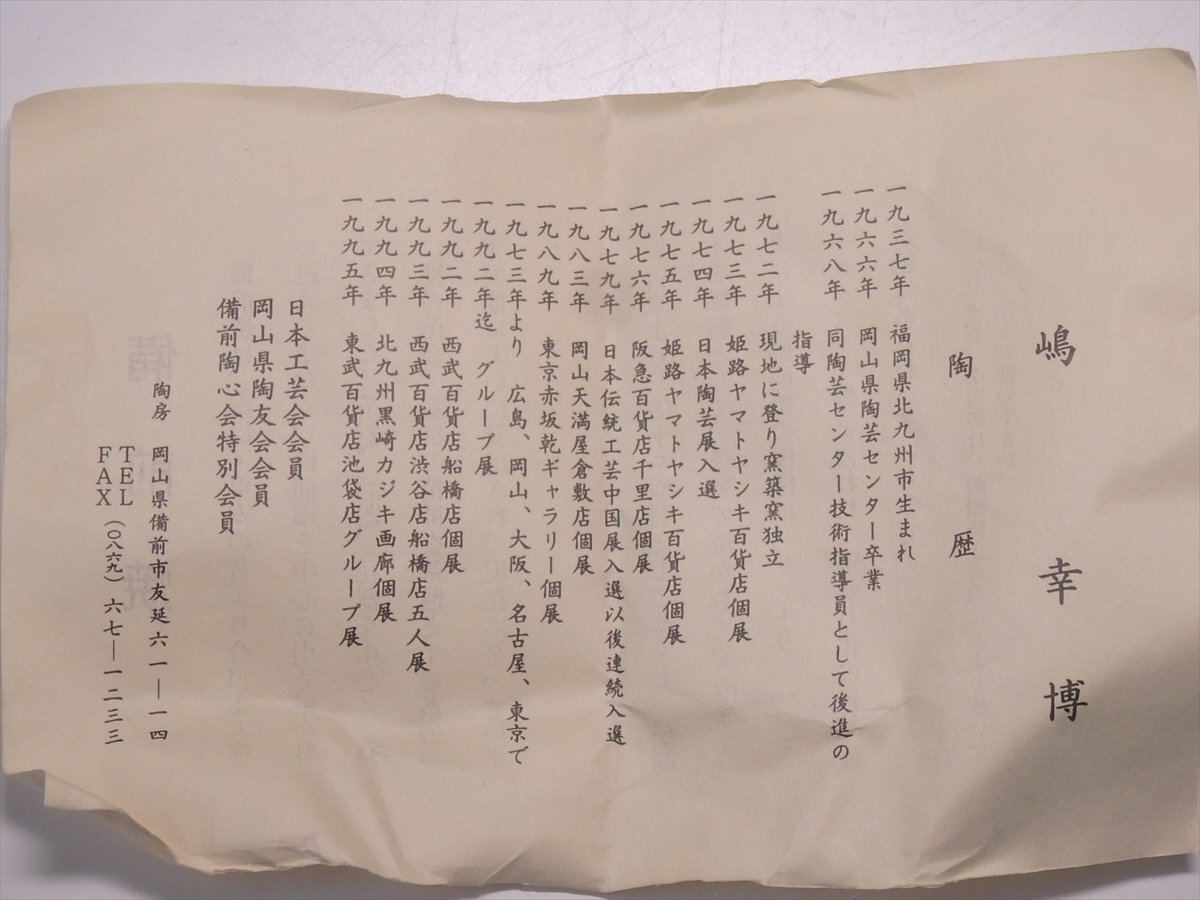 嶋幸博
陶歴
一九三七年 福岡県北九州市生まれ
一九六六年 岡山県陶芸センター卒業
一九六八年 同陶芸センター技術指導員として後進の
指導
一九七二年 現地に登り窯築窯独立
一九七三年 姫路ヤマトヤシキ百貨店個展
一九七四年 日本陶芸展入選
一九七五年 姫路ヤマトヤシキ百貨店個展
一九七六年 阪急百貨店千里店個展
一九七九年 日本伝統工芸中国展入選以後連続入選
一九八三年 岡山天満屋倉敷店個展
一九八九年 東京赤坂乾ギャラリー個展
一九七三年より 広島、岡山、大阪、名古屋、東京で
一九九二年迄 グループ展
一九九二年 西武百貨店船橋店個展
一九九三年 西武百貨店渋谷店船橋店五人展
一九九四年 北九州黒崎カジキ画廊個展
一九九五年 東武百貨店池袋店グループ展
日本工芸会会員
岡山県陶友会会員
備前陶心会特別会員
陶房 岡山県備前市友延六一―一四
TEL
FAX (〇八六九)六七―一二三三